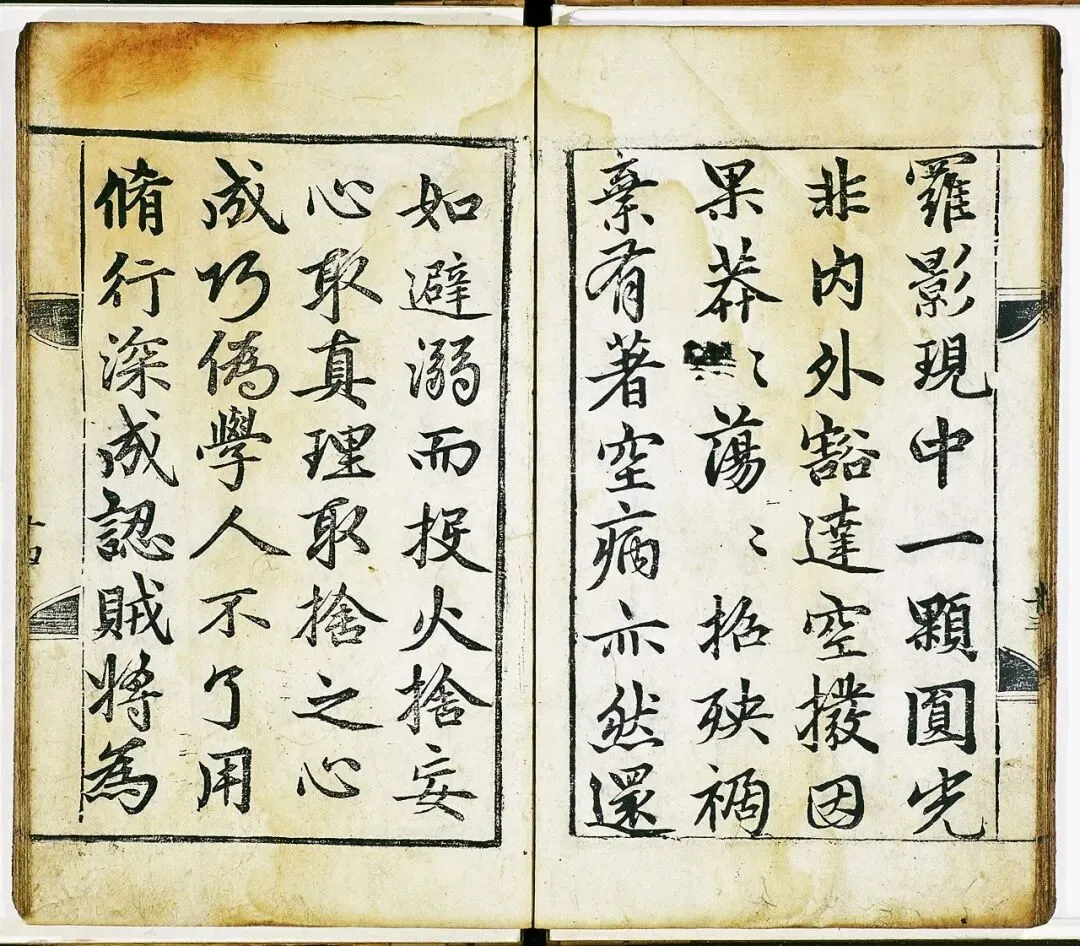 羅影現中一顆圓光
非内外豁達空撥因
果莽〻蕩〻招殃禍
棄有著空病亦然還
如避溺而投火捨妄
心取真理取捨之心
成巧偽學人不了用
脩行深成認賊將為